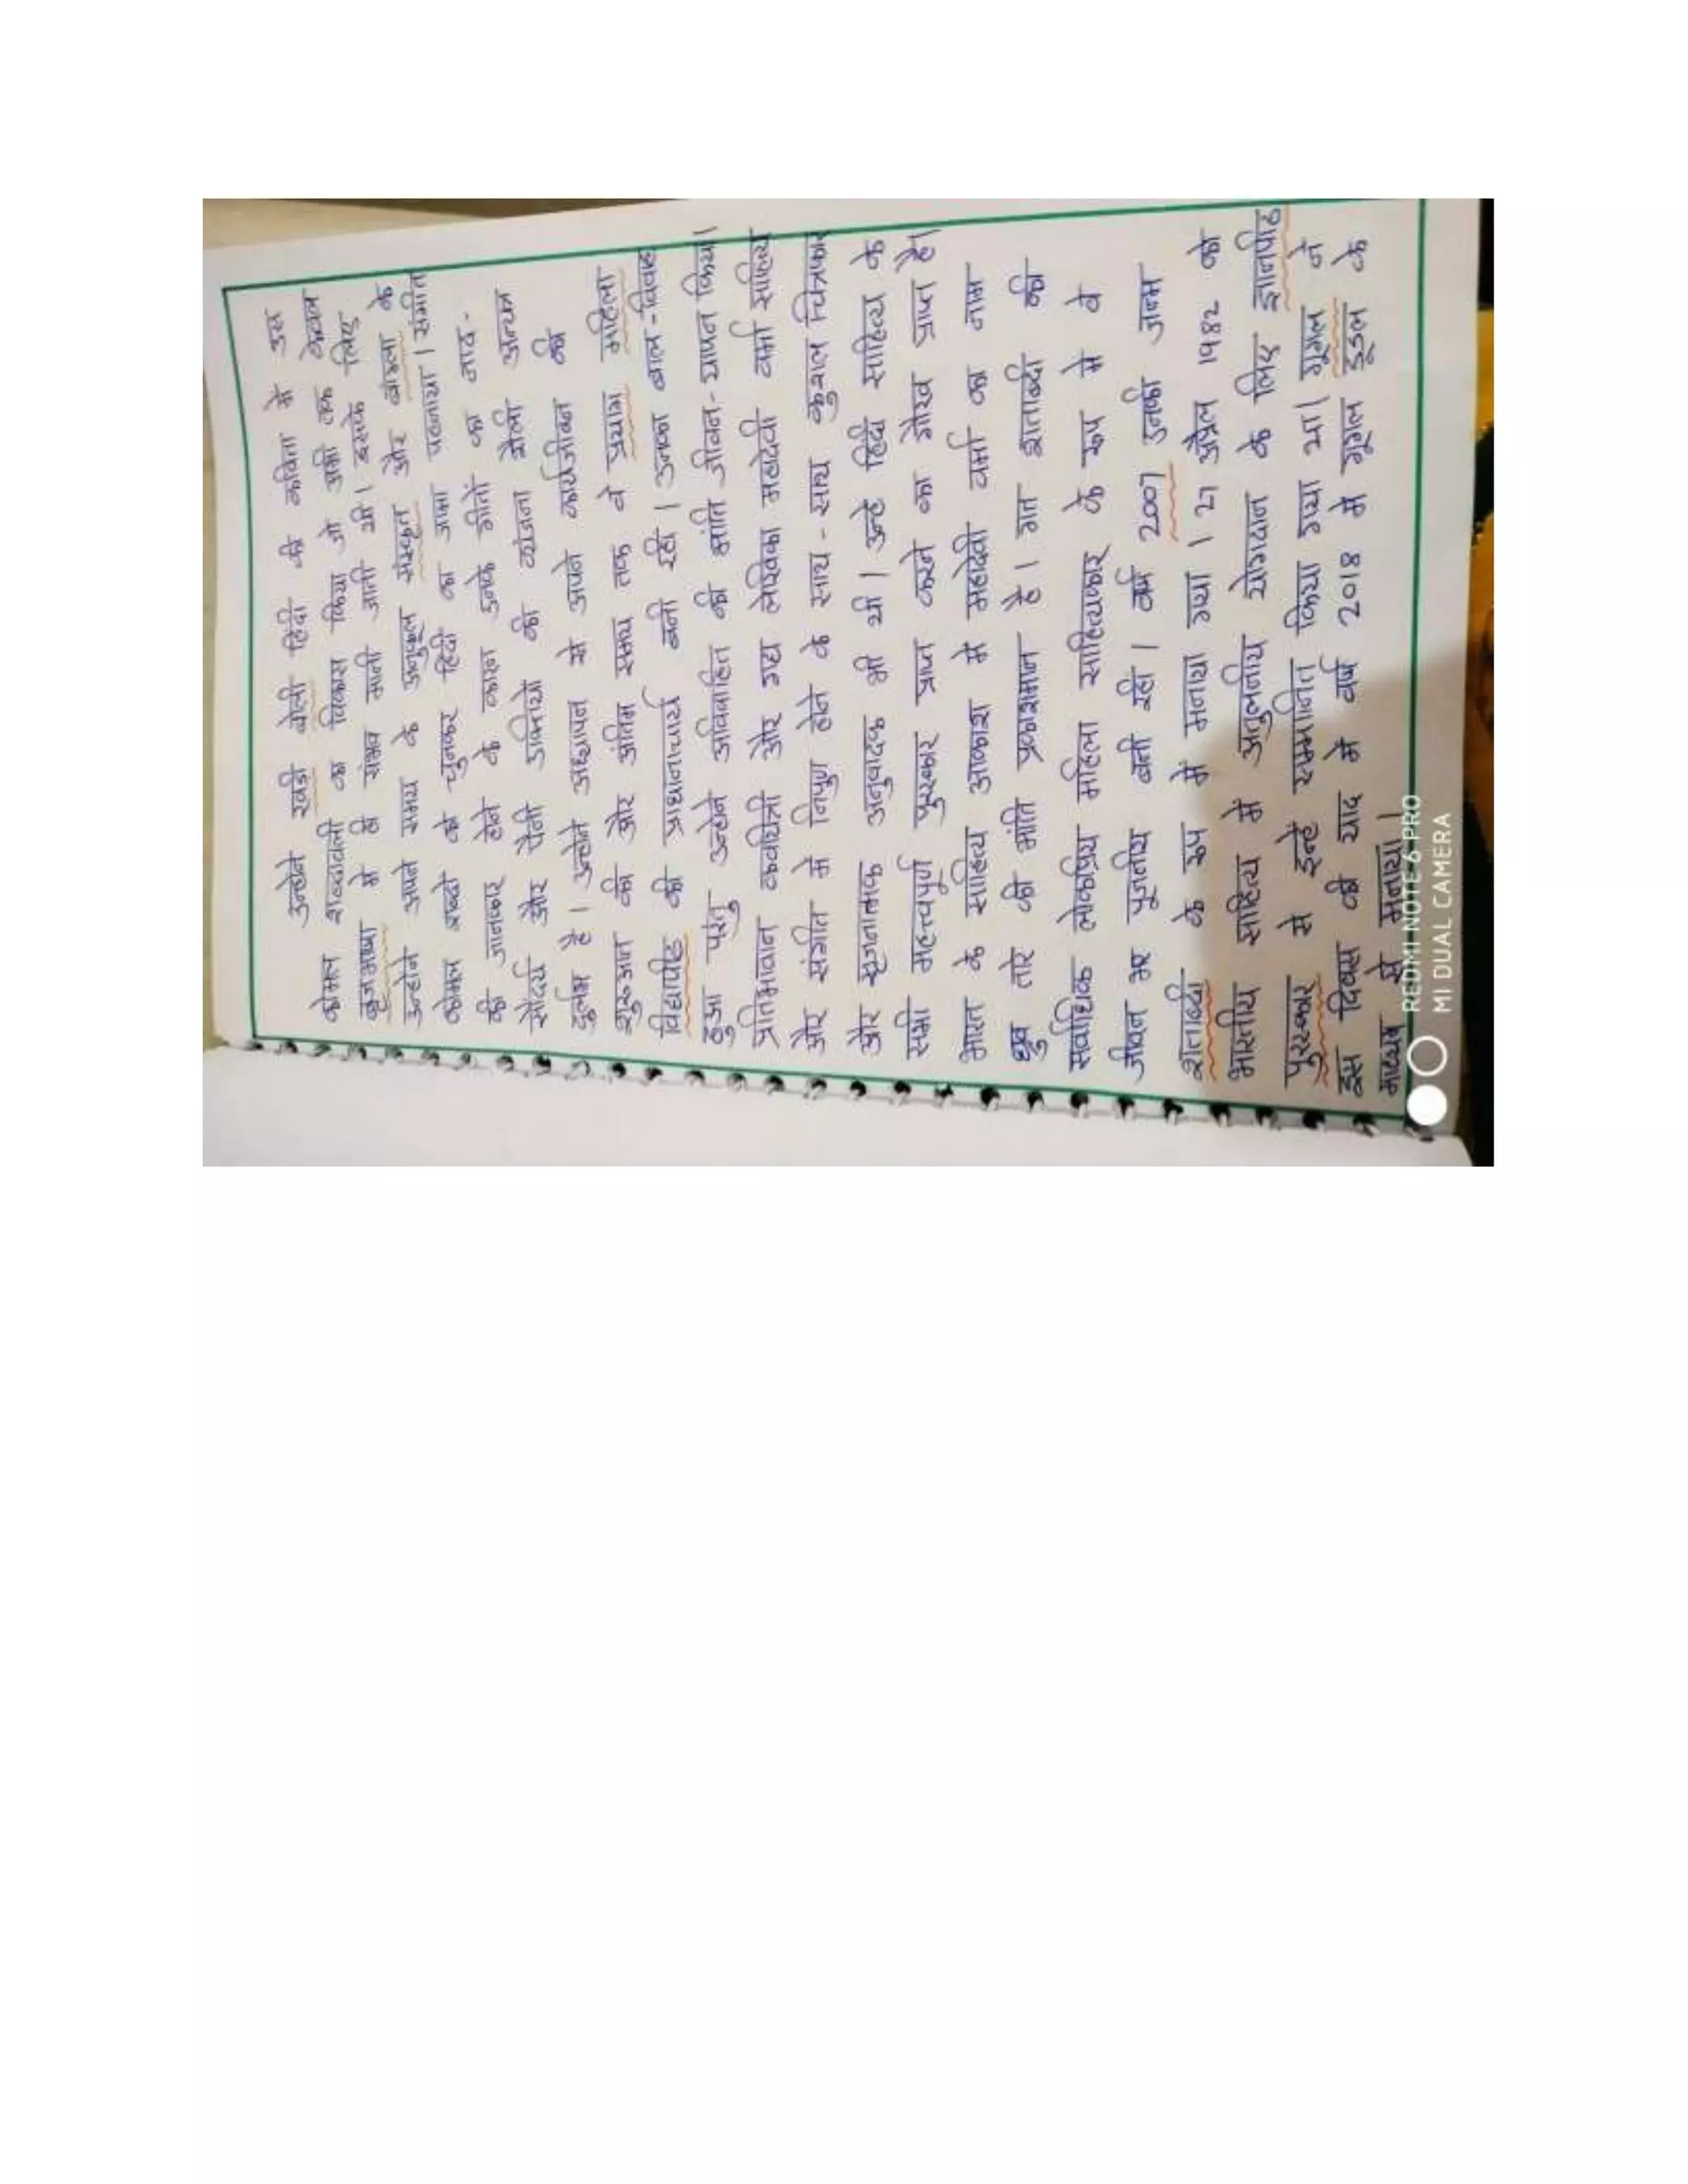 उन्होने खड़ी बोली हिंदी की कविता में उस
कोमल शब्दावली का विकास किया जो अभी तक केवल
बृजभाषा में ही संभव मानी जाती थी। इसके लिए
उन्होने अपने समय के अनुकूल संस्कृत और बांग्ला के
कोमल शब्दों को चुनकर हिंदी का जामा पहनाया। संगीत
की जानकार होने के कारण उनके गीतों का नाद-
सौंदर्य और पैनी उक्तियों की व्यंजना शैली अन्यत्र
दुर्लभ है। उन्होने अध्यापन से अपने कार्यजीवन की
शुरूआत की और अंतिम समय तक वे प्रयाग महिला
विद्यापीठ की प्राधानाचार्य बनी रहीं। उनका बाल-विवाह
हुआ परंतु उन्होने अविवाहित की भांति जीवन-यापन किया।
प्रतिभावान कवयित्री और गद्य लेखिका महादेवी वर्मा साहित्य
और संगीत में निपुण होने के साथ-साथ कुशल चित्रकार
और सृजनात्मक अनुवादक भी थी। उन्हे हिंदी साहित्य के
सभी महत्त्वपूर्ण पुरस्कार प्राप्त करने का गौरव प्राप्त है।
भारत के साहित्य आकाश में महादेवी वर्मा का नाम
ध्रुव तारे की भांति प्रकाशमान है। गत शताब्दी की
सर्वाधिक लोकप्रिय महिला साहित्यकार के रूप में वे
जीवन भर पूजनीय बनी रहीं। वर्ष 2007 उनकी जन्म
शताब्दी के रूप में मनाया गया। 27 अप्रैल 1982 को
भारतीय साहित्य में अतुलनीय योगदान के लिए ज्ञानपीठ
पुरस्कार से इन्हें सम्मानित किया गया था। गूगल ने
इस दिवस की याद में वर्ष 2018 में गूगल डूडल के
माध्यम से मनाया।
REDMI NOTE 6 PRO
MI DUAL CAMERA